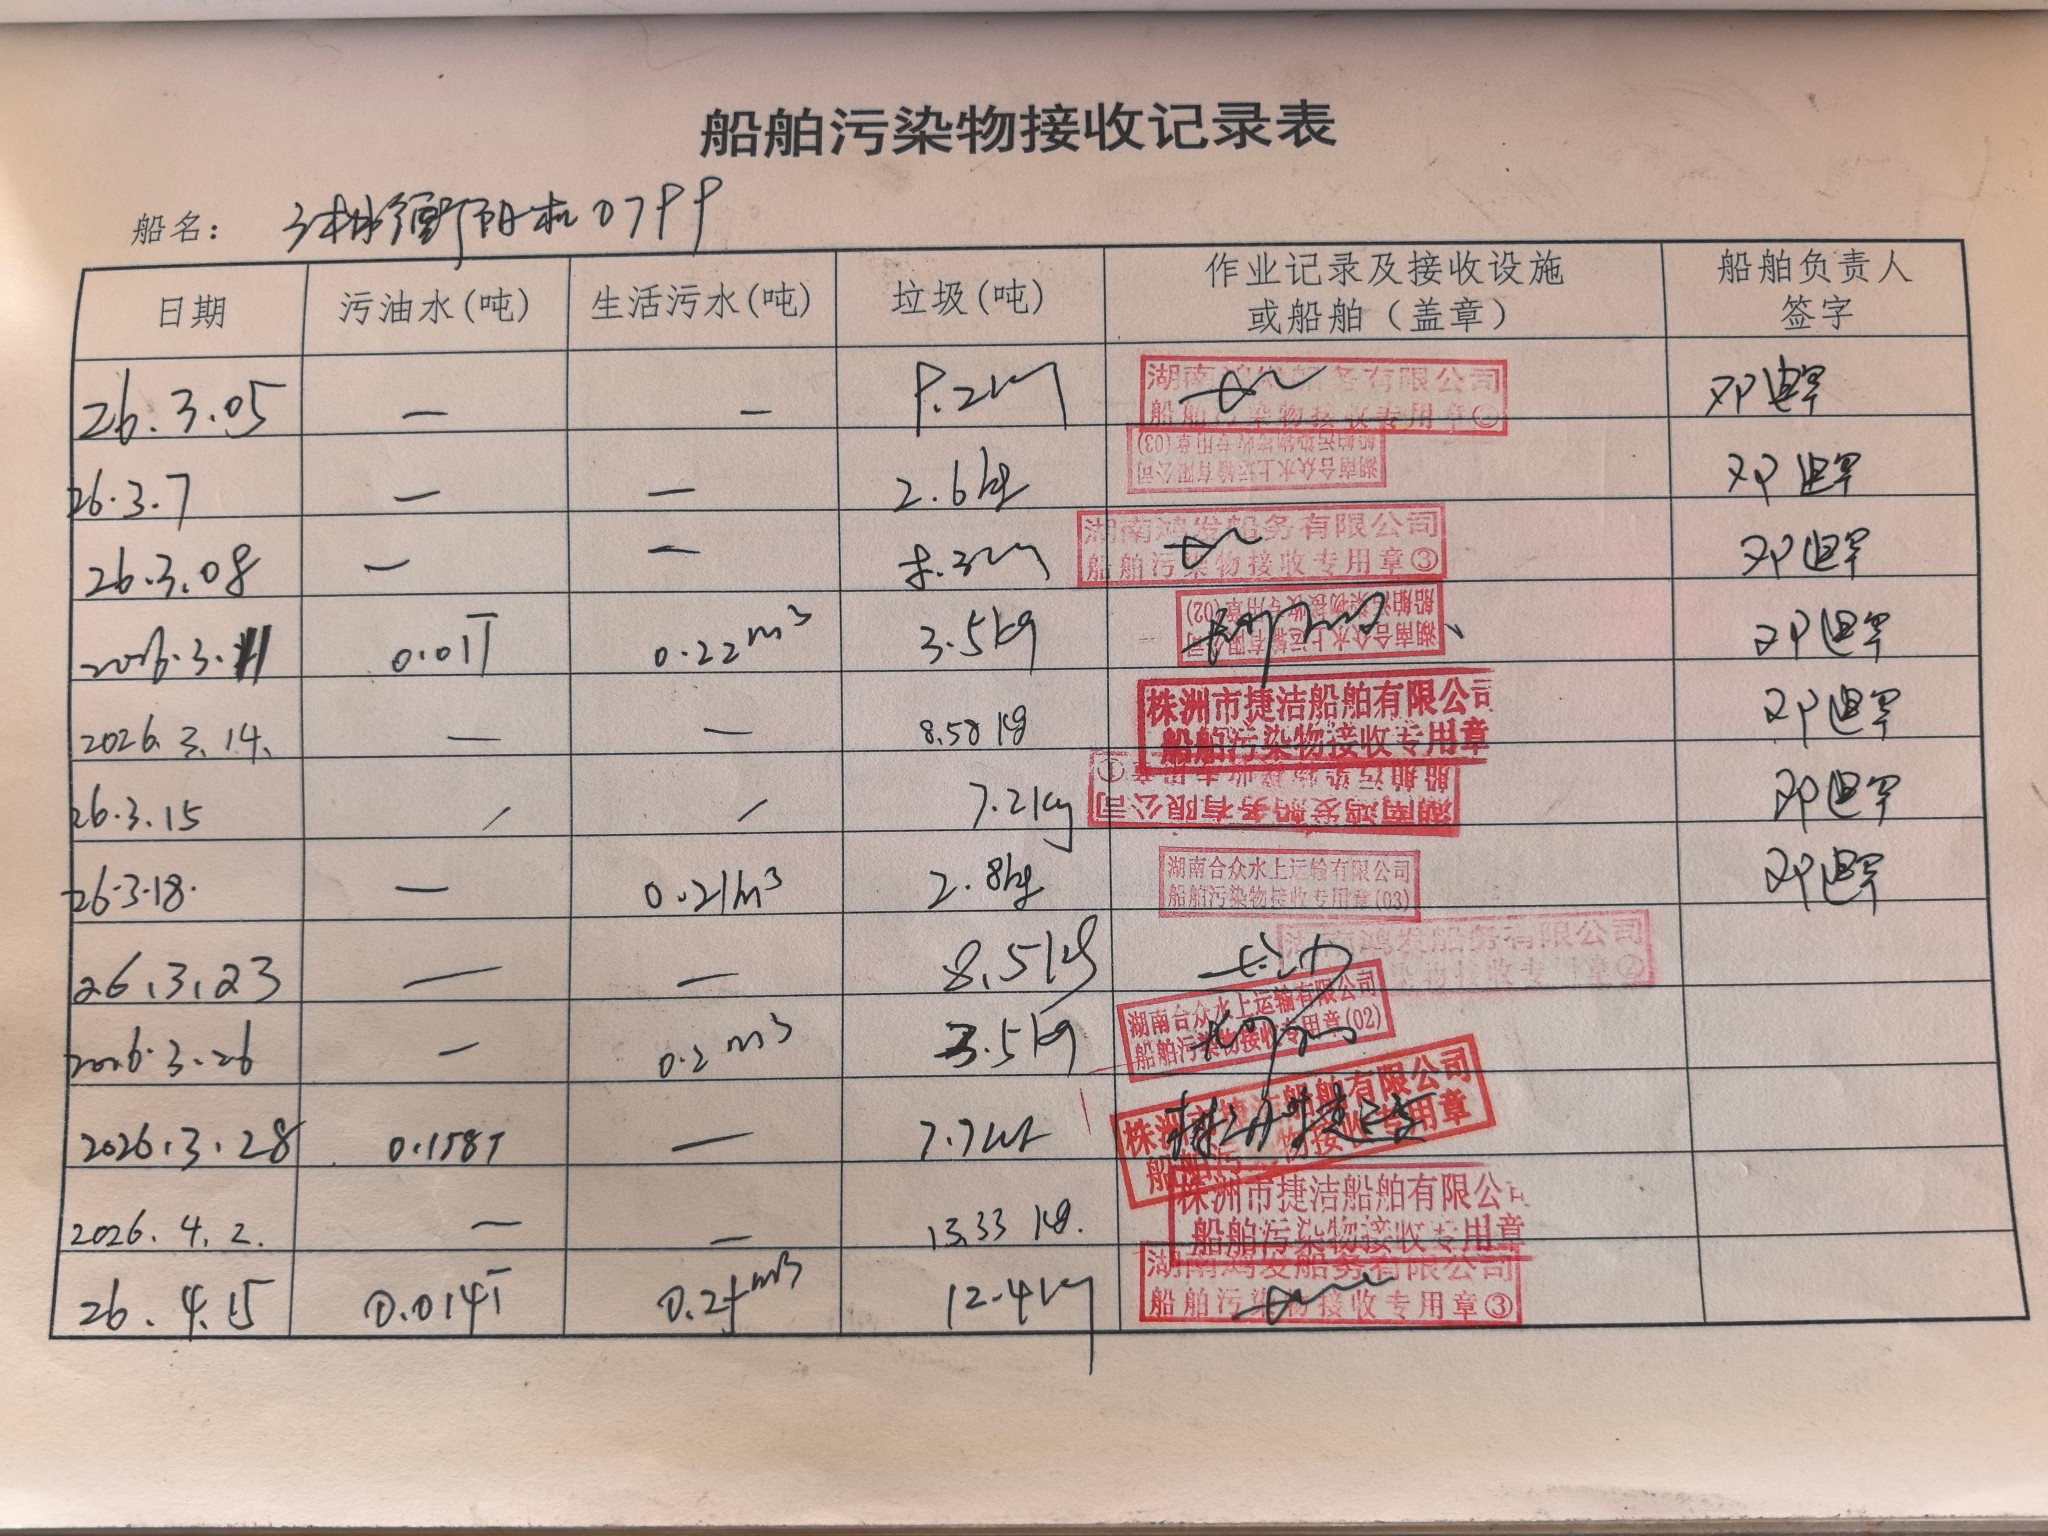 船舶污染物接收记录表
船名： 湘衡阳机0799
日期 污油水(吨) 生活污水(吨) 垃圾(吨) 作业记录及接收设施或船舶（盖章） 船舶负责人签字
26.3.05 — — 9.2kg 湖南鸿发船务有限公司 船舶污染物接收专用章
26.3.7 — — 2.6kg 湖南合众水上运输有限公司 船舶污染物接收专用章(03)
26.3.08 — — 8.3kg 湖南鸿发船务有限公司 船舶污染物接收专用章③
2026.3.11 0.01T 0.22m³ 3.5kg 湖南合众水上运输有限公司 船舶污染物接收专用章(02)
2026.3.14. — — 8.58kg 株洲市捷洁船舶有限公司 船舶污染物接收专用章
26.3.15 / / 7.2kg 湖南鸿发船务有限公司 船舶污染物接收专用章①
26.3.18. — 0.21m³ 2.8kg 湖南合众水上运输有限公司 船舶污染物接收专用章(03)
26.3.23 — — 8.5kg 长沙 湖南鸿发船务有限公司 船舶污染物接收专用章②
2026.3.26 — 0.2m³ 3.5kg 湖南合众水上运输有限公司 船舶污染物接收专用章(02)
2026.3.28 0.158T — 7.7kg 株洲捷洁 株洲市捷洁船舶有限公司 船舶污染物接收专用章
2026.4.2. — — 13.33kg. 株洲市捷洁船舶有限公司 船舶污染物接收专用章
26.4.15 0.014T 12.4kg 湖南鸿发船务有限公司 船舶污染物接收专用章③